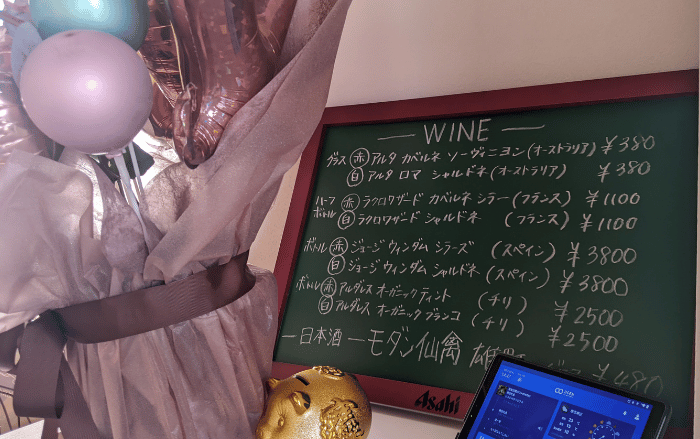 — WINE —
グラス 赤 アルタ カベルネ ソーヴィニヨン (オーストラリア) ¥380
白 アルタ ロマ シャルドネ (オーストラリア) ¥380
ハーフボトル 赤 ラクロワザード カベルネ シラー (フランス) ¥1100
白 ラクロワザード シャルドネ (フランス) ¥1100
ボトル 赤 ジョージ ウィンダム シラーズ (スペイン) ¥3800
白 ジョージ ウィンダム シャルドネ (スペイン) ¥3800
ボトル 赤 アルダレス オーガニック ティント (チリ) ¥2500
白 アルダレス オーガニック ブランコ (チリ) ¥2500
— 日本酒 — モダン仙禽 ¥480
Asahi